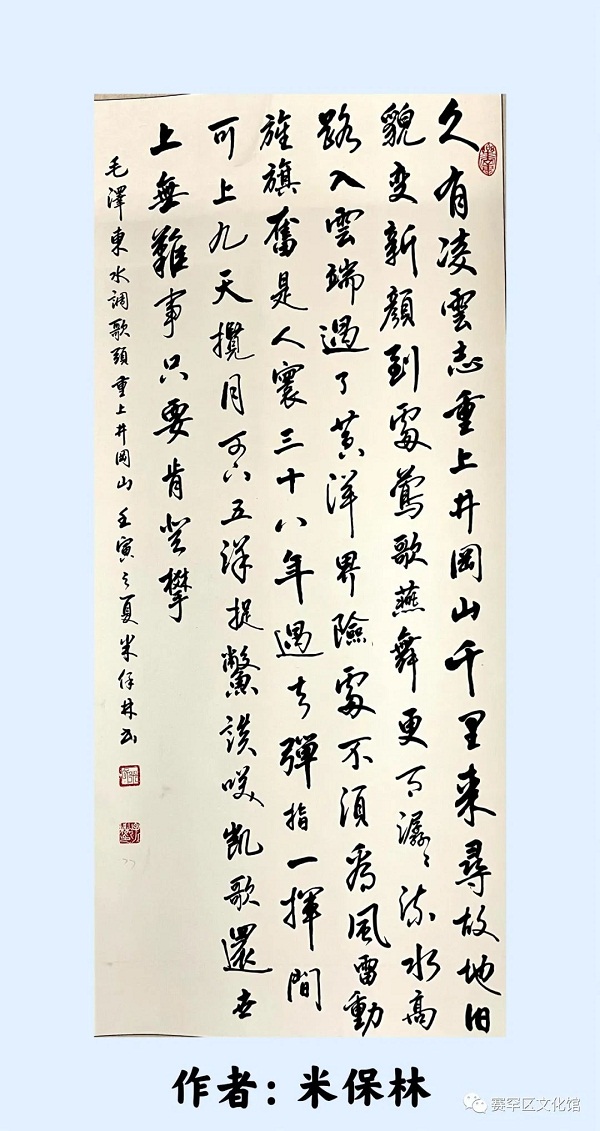 久有凌雲志重上井岡山千里来尋故地旧
貌变新顔到處鶯歌燕舞更有潺〻流水高
路入雲端過了黄洋界險處不須看風雷動
旌旗奮是人寰三十八年過去彈指一揮間
可上九天攬月可下五洋捉鱉談笑凱歌還世
上無難事只要肯登攀
毛澤東水调歌頭重上井岡山 壬寅之夏米保林书
作者：米保林
赛罕区文化馆